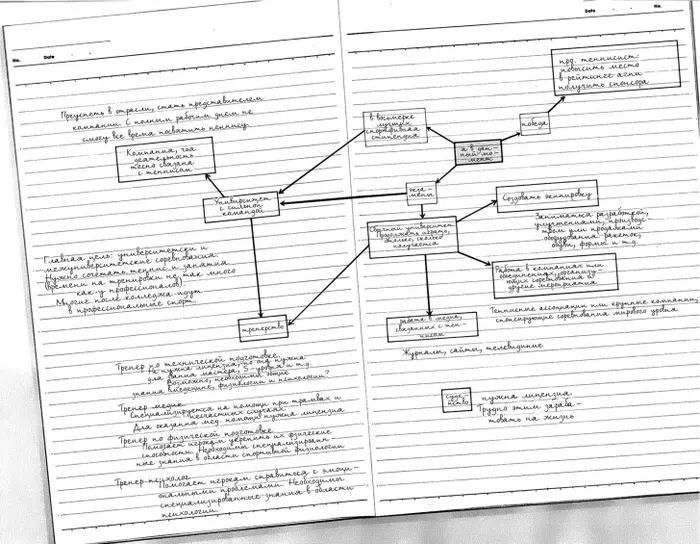 No.
Date
Преуспеть в отрасли, стать представителем
компании. С полным рабочим днем не
смогу все время посвятить теннису.
Компания, чья
деятельность
тесно связана
с теннисом
Университет
с сильной
командой
Главная цель: университетски и
междуниверситетские соревнования.
Нужно сочетать теннис и занятия
(времени на тренировки не так много
как у профессионалов).
Многие после колледжа идут
в профессиональный спорт.
тренерство
Тренер по технической подготовке
Не нужна лицензия, но она нужна
для звания мастера, S-уровня и т.д.
Возможно, необходимы общие
знания медицине, физиологии и психологии?
Тренер медик
Специализируется на помощи при травмах и
несчастных случаях
Для оказания мед. помощи нужна лицензия
Тренер по физической подготовке
Помогает игрокам укрепить их физические
способности. Необходимы специализирован-
ные знания в области спортивной физиологии
Тренер-психолог
Помогает игрокам справиться с эмоци-
ональными проблемами. Необходимы
специализированные знания в области
психологии.
Date
No.
про. теннисист:
повысить место
в рейтинге
получить спонсора
в восьмерке
лучших
спортивная
стипендия
победа
а в дан-
ный мо-
мент
экза-
мены
Обычный университет
Продолжать играть,
столько, сколько
получается
Создавать экипировку
Заниматься разработкой,
улучшениями, производс-
твом или продажами
оборудования: ракеток,
обуви, формы и т.д.
Работа в компаниях или
объединениях, организу-
ющих соревнования или
другие мероприятия
Теннисные ассоциации или крупные компании,
спонсирующие соревнования мирового уровня
работа в медиа,
связанных с тен-
нисом
Журналы, сайты, телевидиние
судей-
ство
нужна лицензия.
Трудно этим зараба-
тывать на жизнь